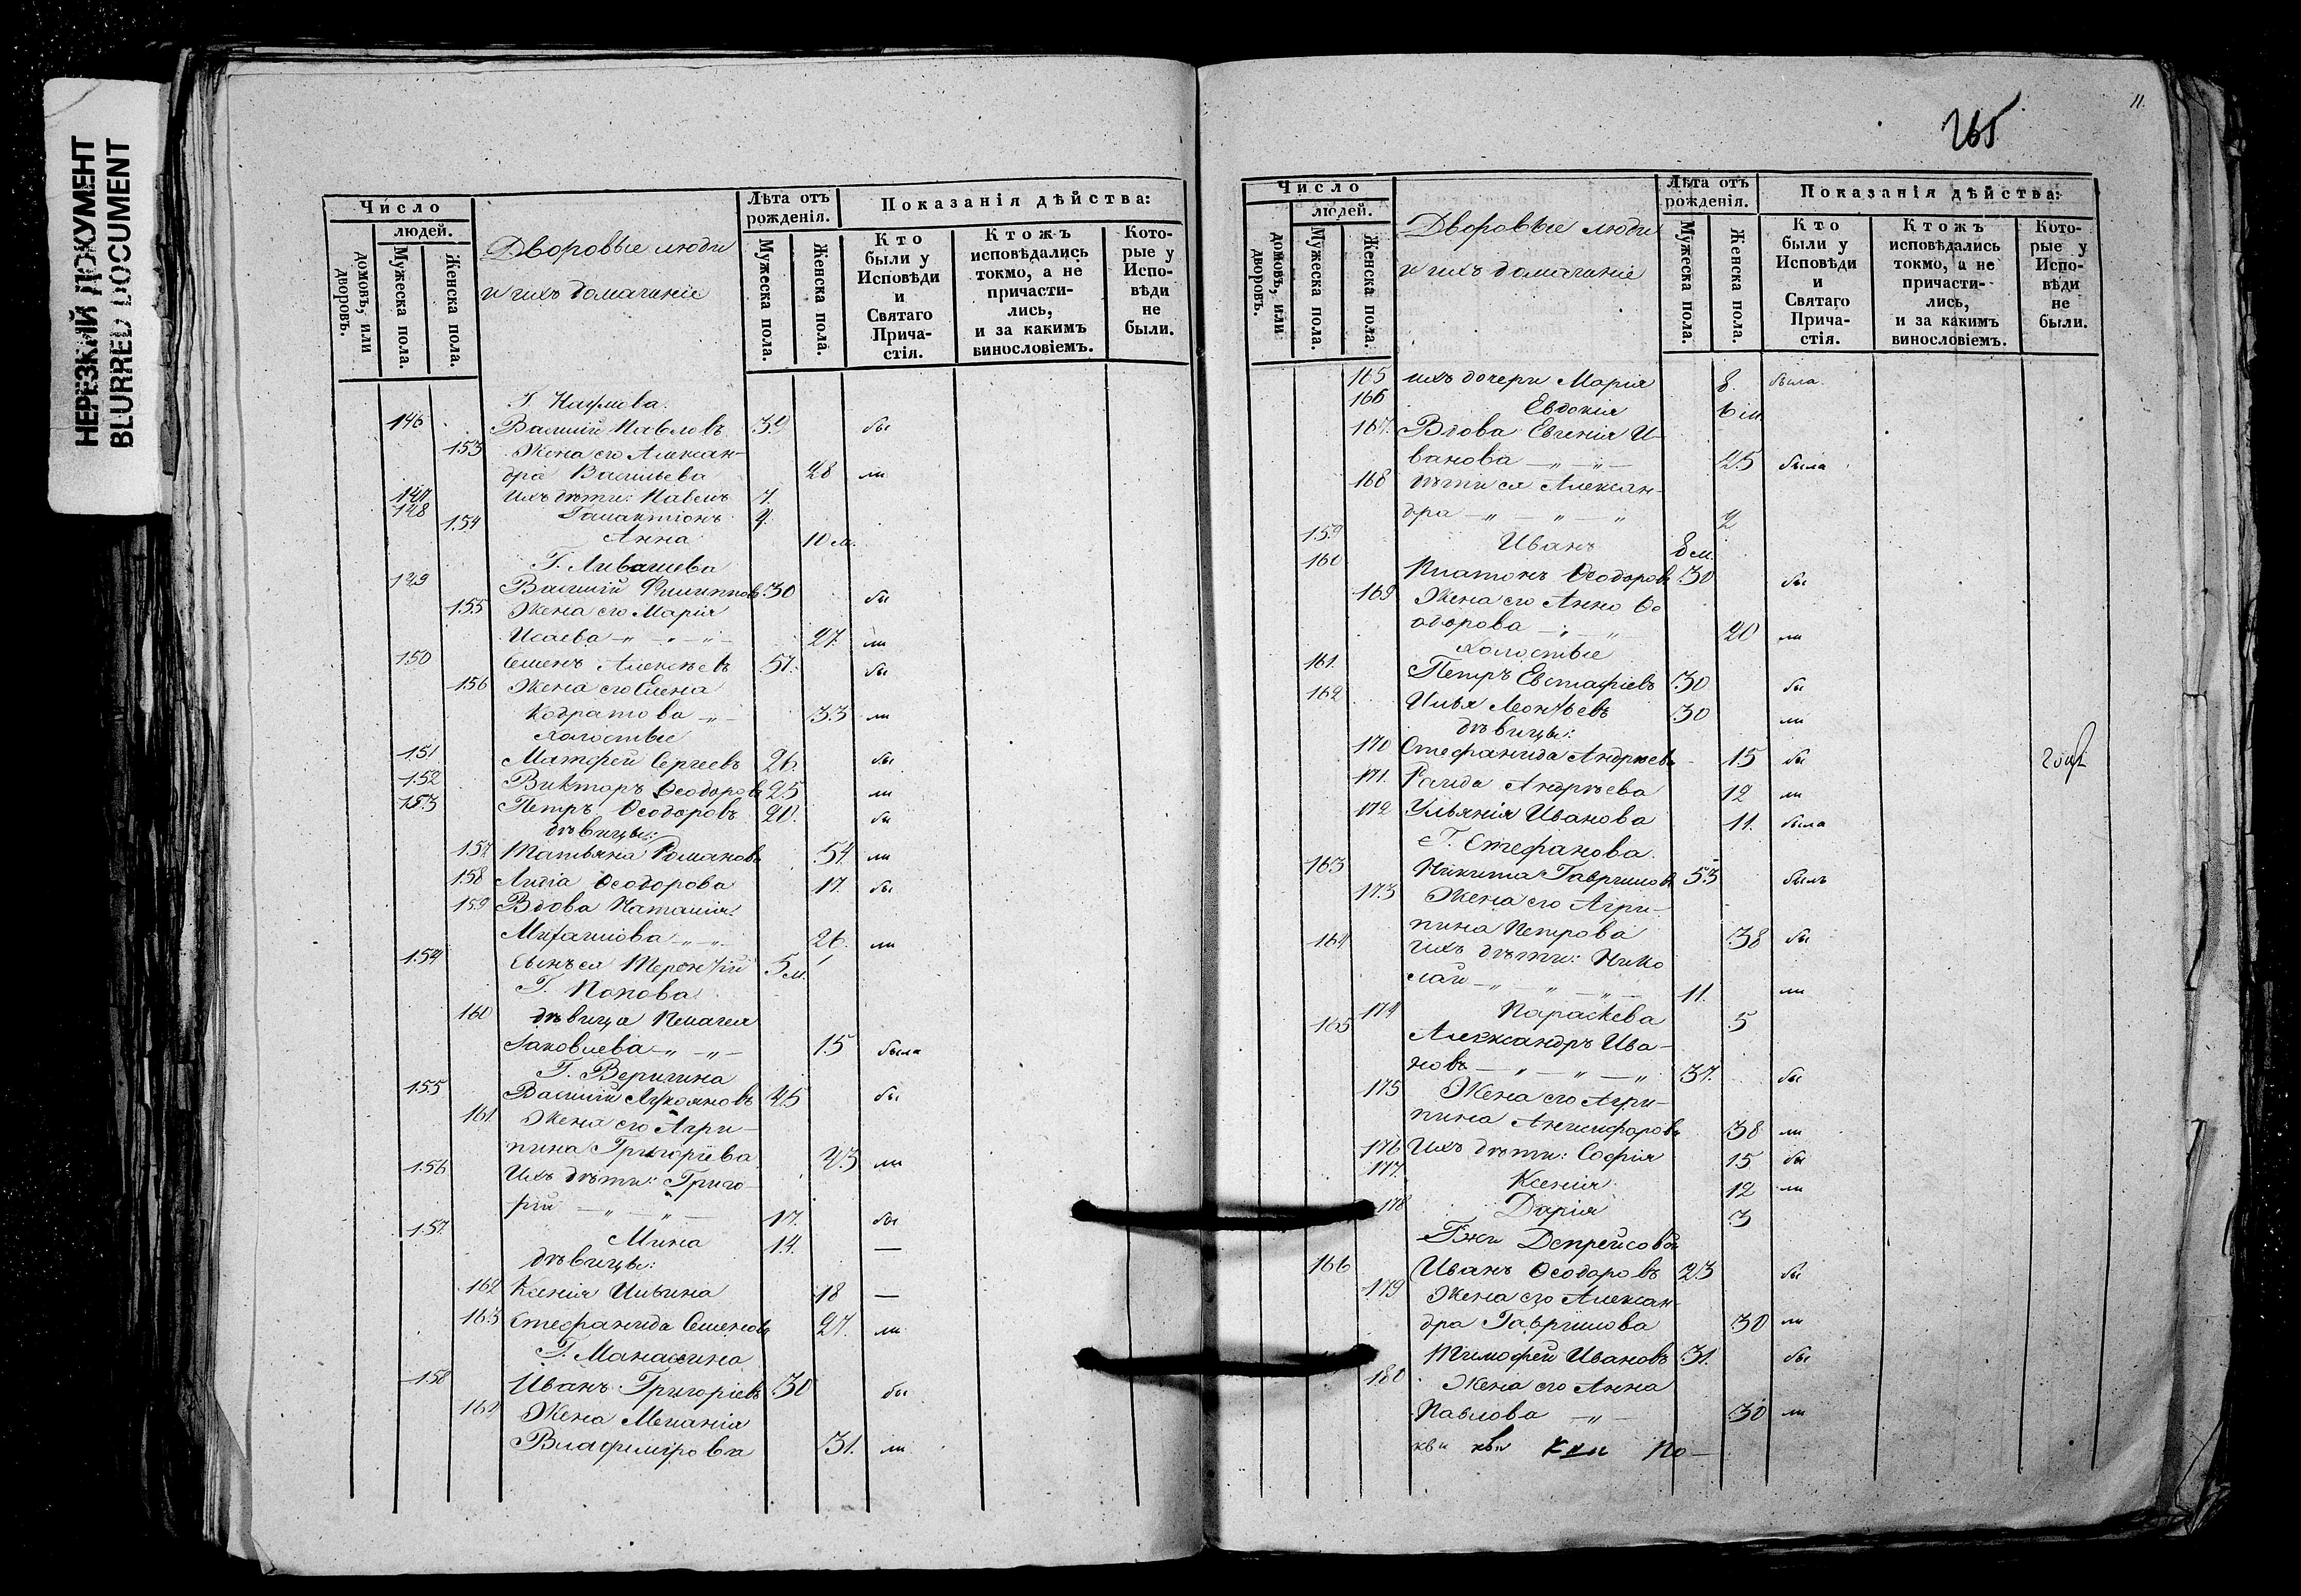 НЕРЕЗКИЙ ДОКУМЕНТ
BLURRED DOCUMENT
Число
людей.
домовъ, или дворовъ.
Мужеска пола.
Женска пола.
Дворовые люди
и ихъ домашніе
Лѣта отъ рожденія.
Мужеска пола.
Женска пола.
Показанія дѣйства:
Кто были у Исповѣди и Святаго Прича-стія.
Ктожъ исповѣдались токмо, а не причасти-лись, и за какимъ винословіемъ.
Кото-рые у Испо-вѣди не были.
Г. Наумова.
146 Василій Павловъ 39 бы
153 Жена его Алексан-
дра Васильева 28 ли
147 Ихъ дѣти: Павелъ 7.
148 Галактіонъ 4.
154 Анна 10 м.
Г. Ливашева
149 Василій Филипповъ 30 бы
155 Жена его Марія
Исаева -"- -"- 27. ли
150 Семенъ Алексѣевъ 57. бы
156 Жена его Елена
Кодратова -"- 33 ли
Холостые
151 Матфей Сергеевъ 26. бы
152 Викторъ Ѳеодоровъ 25 ли
153 Петръ Ѳеодоровъ 20. бы
дѣвицы:
157 Татьяна Романова 54. ли
158 Лидіа Ѳеодорова 17. бы
159 Вдова Наталія
Михаилова -"- 26 ли
154 Сынъ ея Терентій 5 м.
Г. Попова
160 дѣвица Пелагея
Іаковлева -"- -"- 15 была
Г. Веригина
155 Василій Лукояновъ 45 бы
161. Жена его Агри-
пина Григоріева 43 ли
156 Ихъ дѣти: Григо-
рій -"- -"- 17. бы
157. Мина 14. —
дѣвицы:
162 Ксенія Ильина 18 —
163 Стефанида Семенова 27. ли
Г. Манасеина
158 Иванъ Григоріевъ 30 бы
164 Жена Меланія
Владимірова 31. ли
11.
265
Число
людей.
домовъ, или дворовъ.
Мужеска пола.
Женска пола.
Дворовые люди
и ихъ домашніе
Лѣта отъ рожденія.
Мужеска пола.
Женска пола.
Показанія дѣйства:
Кто были у Исповѣди и Святаго Прича-стія.
Ктожъ исповѣдались токмо, а не причасти-лись, и за какимъ винословіемъ.
Кото-рые у Испо-вѣди не были.
165 ихъ дочери Марія 8. была
166 Евдокія 6 м
167. Вдова Евгенія И-
ванова -"- -"- 25 была
168 Дѣти ея Алексан-
дра -"- -"- -"- 2
159 Иванъ 8 м.
160 Платонъ Ѳеодоровъ 30 бы
169 Жена его Анна Ѳе
одорова -"- -"- 20 ли
Холостые
161. Петръ Евстафіевъ 30 бы
162 Илья Леонтьевъ 30 ли
дѣвицы:
170 Стефанида Андреева 15 бы
171. Раида Андреева 12 ли
172 Ульянія Иванова 11. была
Г. Стефанова.
163 Никита Гавриловъ 53 былъ
173 Жена его Агри-
пина Петрова 38 бы
164 Ихъ дѣти: Нико
лай -"- -"- -"- 11. ли
174 Параскева 5
165 Александръ Ива-
новъ -"- -"- -"- 37. бы
175 Жена его Агри-
пина Анемфорова 38 ли
176 Ихъ дѣти: Софія 15 бы
177. Ксенія 12 ли
178 Дарія 3
Гжи Депрейсовой
166 Иванъ Ѳеодоровъ 23 бы
179 Жена его Алексан-
дра Гаврилова 30 ли
Тимофей Ивановъ 31. бы
180 Жена его Анна
Павлова -"- 30 ли